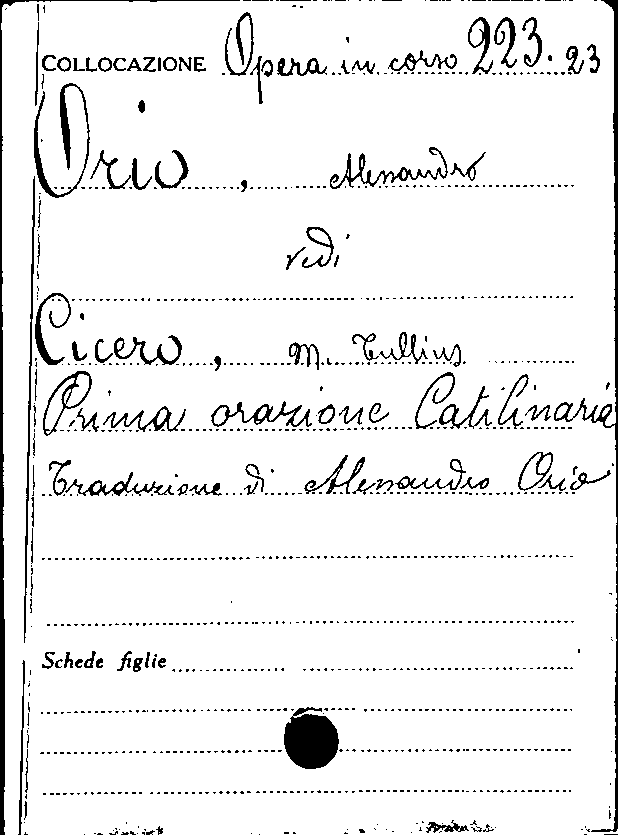 COLLOCAZIONE Opera in corso 223.23
Orio, Alessandro
vedi
Cicero, M. Tullius
Prima orazione Catilinaria
Traduzione di Alessandro Orio
Schede figlie